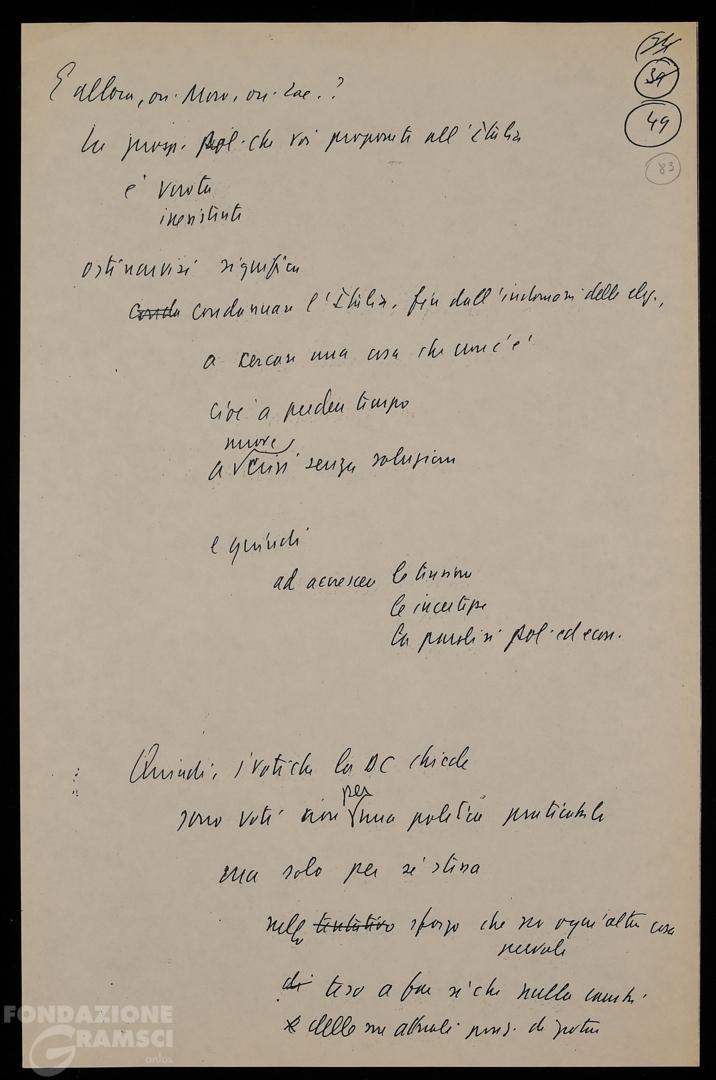 24
39
49
83
E allora, on. Moro, on. Zac.?
La prosp. pol. che voi proponete all'Italia
è vuota
inesistente
ostinarvisi significa
conda condannare l'Italia, fin dall'indomani delle elez.,
a cercare una cosa che non c'è
cioè a perdere tempo
nuove
a crisi senza soluzione
e quindi
ad accrescere le tensioni
le incertezze
la paralisi pol. ed econ.
Quindi, i voti che la DC chiede
per
sono voti non una politica praticabile
ma solo per sé stessa
nello tentativo sforzo che su ogni altra cosa
prevale
di teso a far sì che nulla cambi
e delle sue attuali posiz. di potere
FONDAZIONE
GRAMSCI
onlus